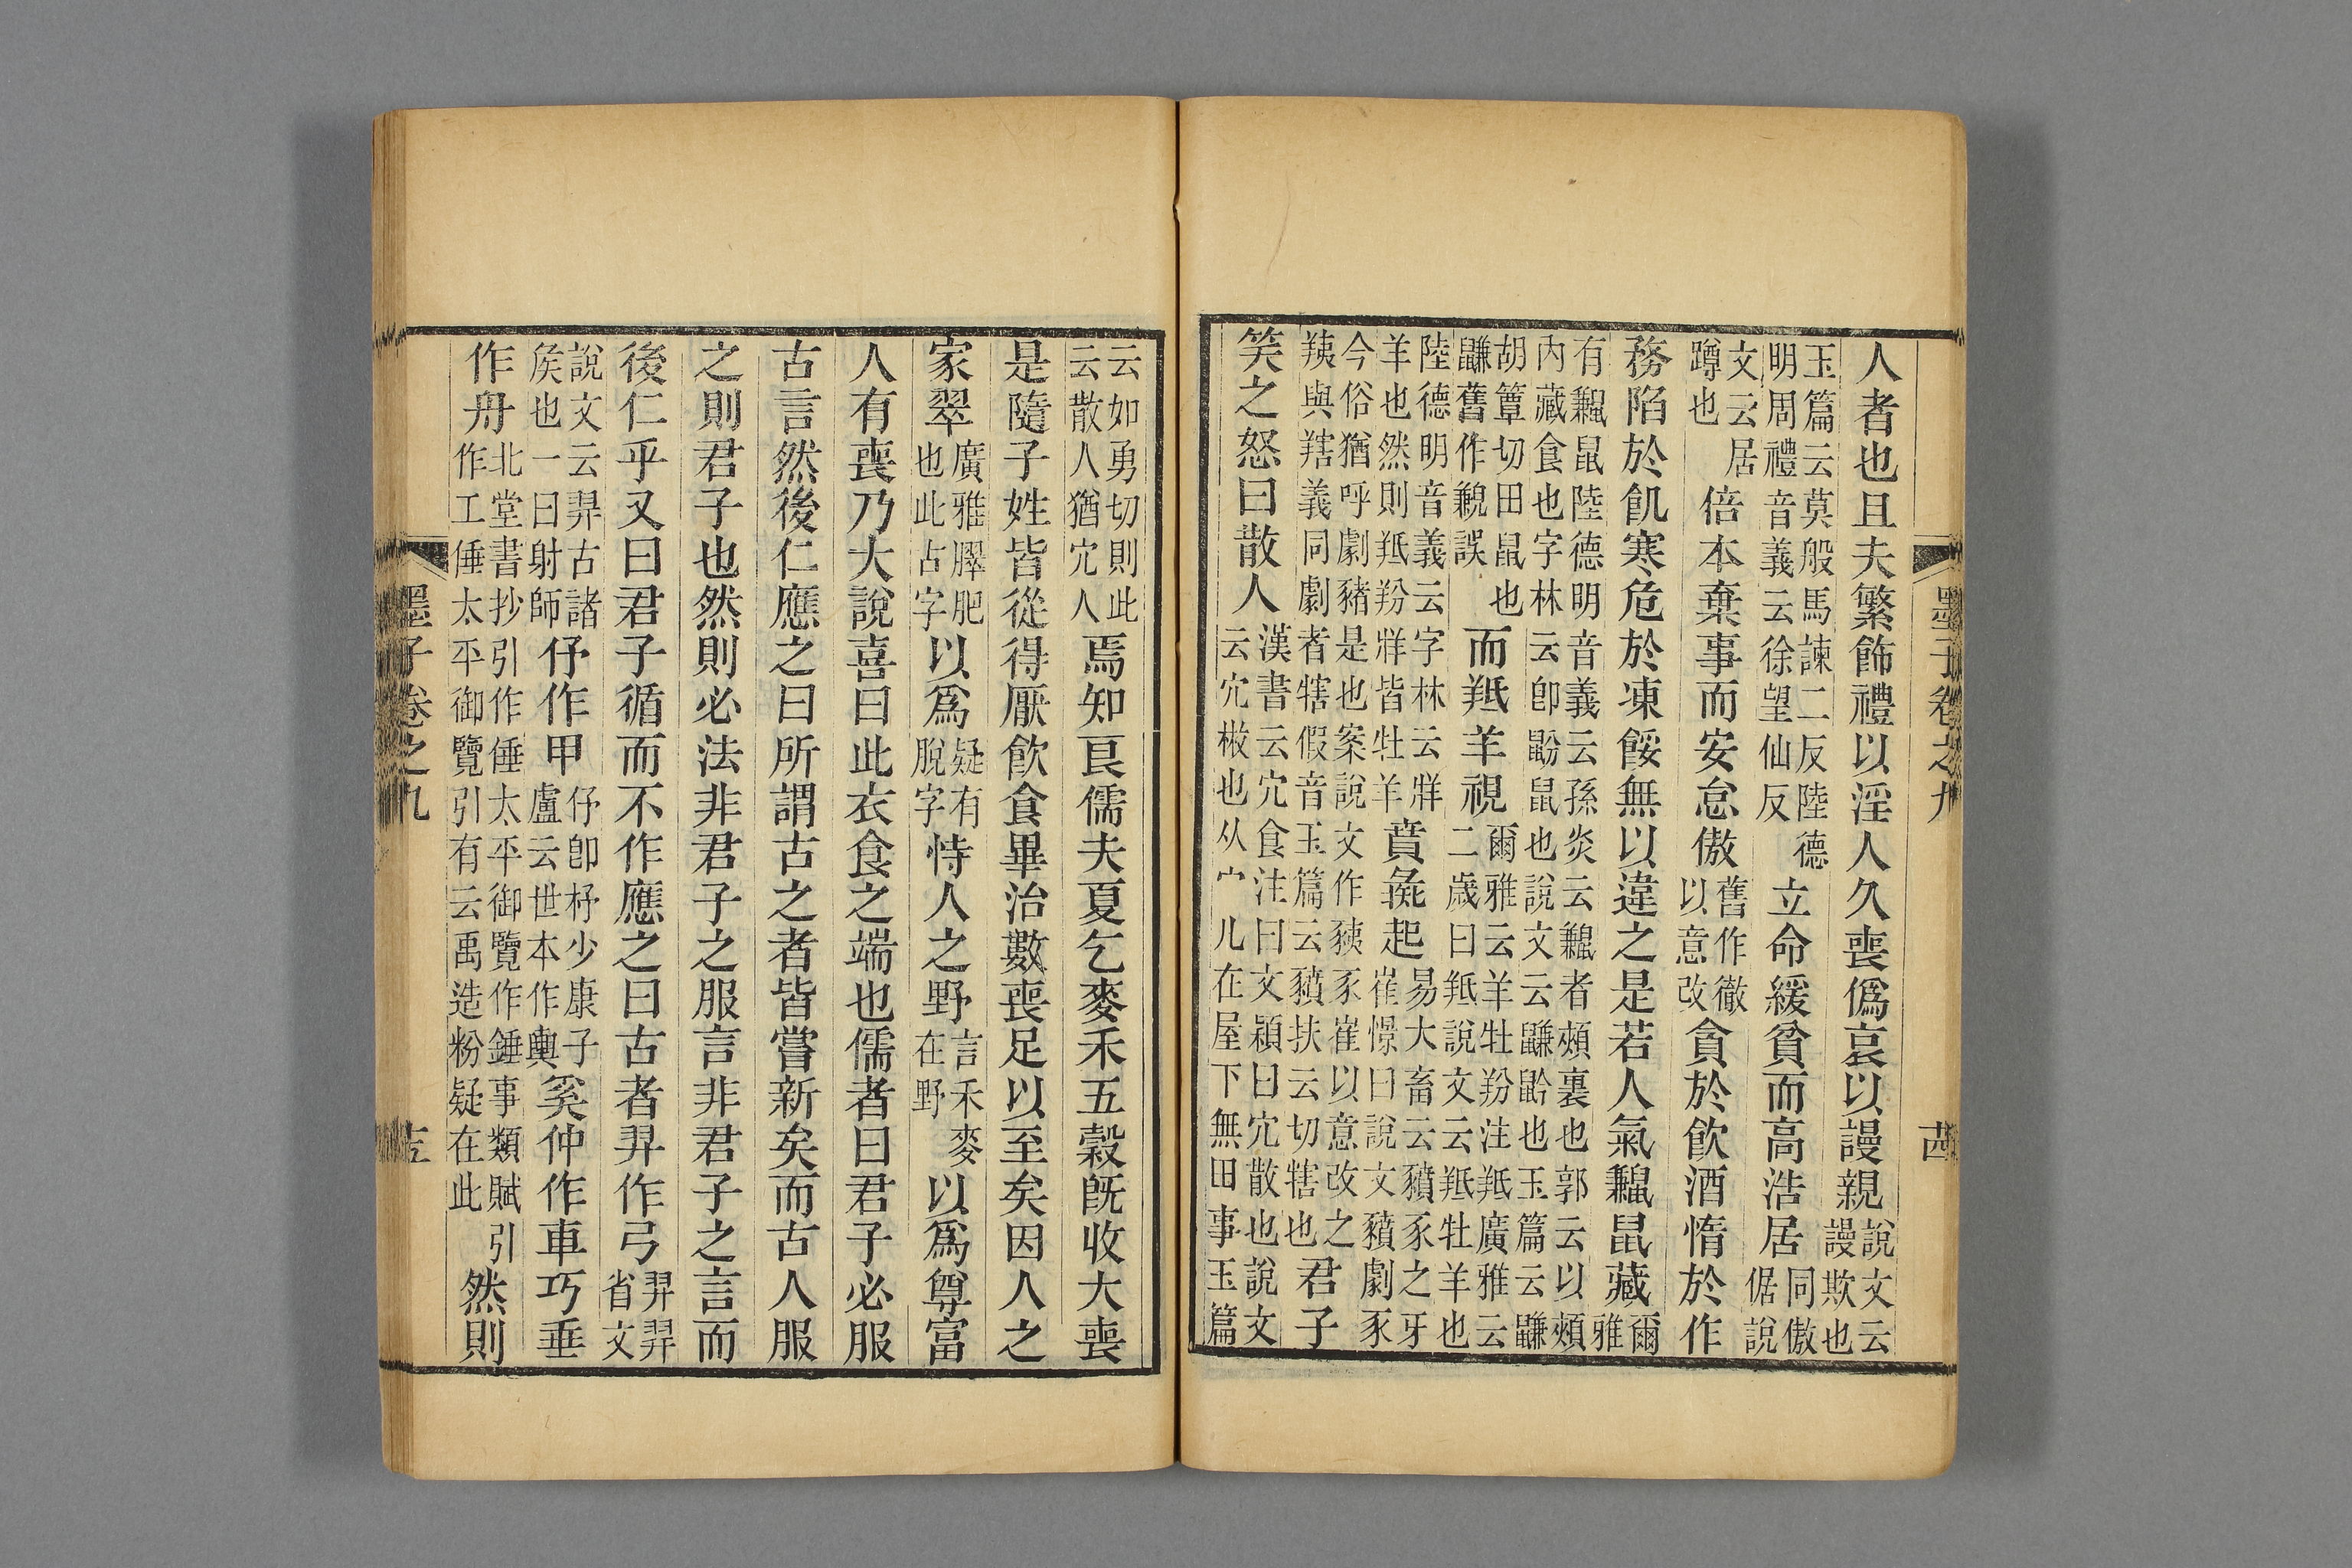 墨子卷之九
人者也且夫繁飾禮以淫人久喪僞哀以謾親說文云謾欺也
玉篇云莫般馬諫二反陸德明周禮音義云徐望仙反立命緩貧而高浩居同傲倨說
文云居蹲也倍本棄事而安怠傲舊作徹以意改貪於飲酒惰於作
務陷於飢寒危於凍餒無以違之是若人氣鼸鼠藏爾雅
有鼸鼠陸德明音義云孫炎云鼸者頰裏也郭云以頰內藏食也字林云卽鼢鼠也說文云鼸䶃也玉篇云鼸
胡簟切田鼠也鼸舊作䶈誤而羝羊視爾雅云羊牡羒注羝廣雅云二歲曰羝說文云羝牡羊也
陸德明音義云字林云牂羊也然則羝羒牂皆牡羊賁彘起易大畜云豶豕之牙崔憬曰說文豶劇豕
今俗猶呼劇豬是也案說文作豕崔以意改之羠與義同劇者犗假音玉篇云豶扶云切犗也君子
笑之怒曰散人漢書云宂食注曰文穎曰宂散也說文云宂也从宀儿在屋下無田事玉篇
云如勇切則此云散人猶宂人焉知良儒夫夏乞麥禾五穀旣收大喪
是隨子姓皆從得厭飮食畢治數喪足以至矣因人之
家翠廣雅臎肥也此古字以爲疑有脫字恃人之野言禾麥在野以爲尊富
人有喪乃大說喜曰此衣食之端也儒者曰君子必服
古言然後仁應之曰所謂古之者皆嘗新矣而古人服
之則君子也然則必法非君子之服言非君子之言而
後仁乎又曰君子循而不作應之曰古者羿作弓羿羿省文
說文云羿古諸矦也一曰射師伃作甲伃卽杼少康子盧云世本作輿奚仲作車巧垂
作舟北堂書抄引作倕太平御覽作錘事類賦引作工倕太平御覽引有云禹造粉疑在此然則
墨子卷之九